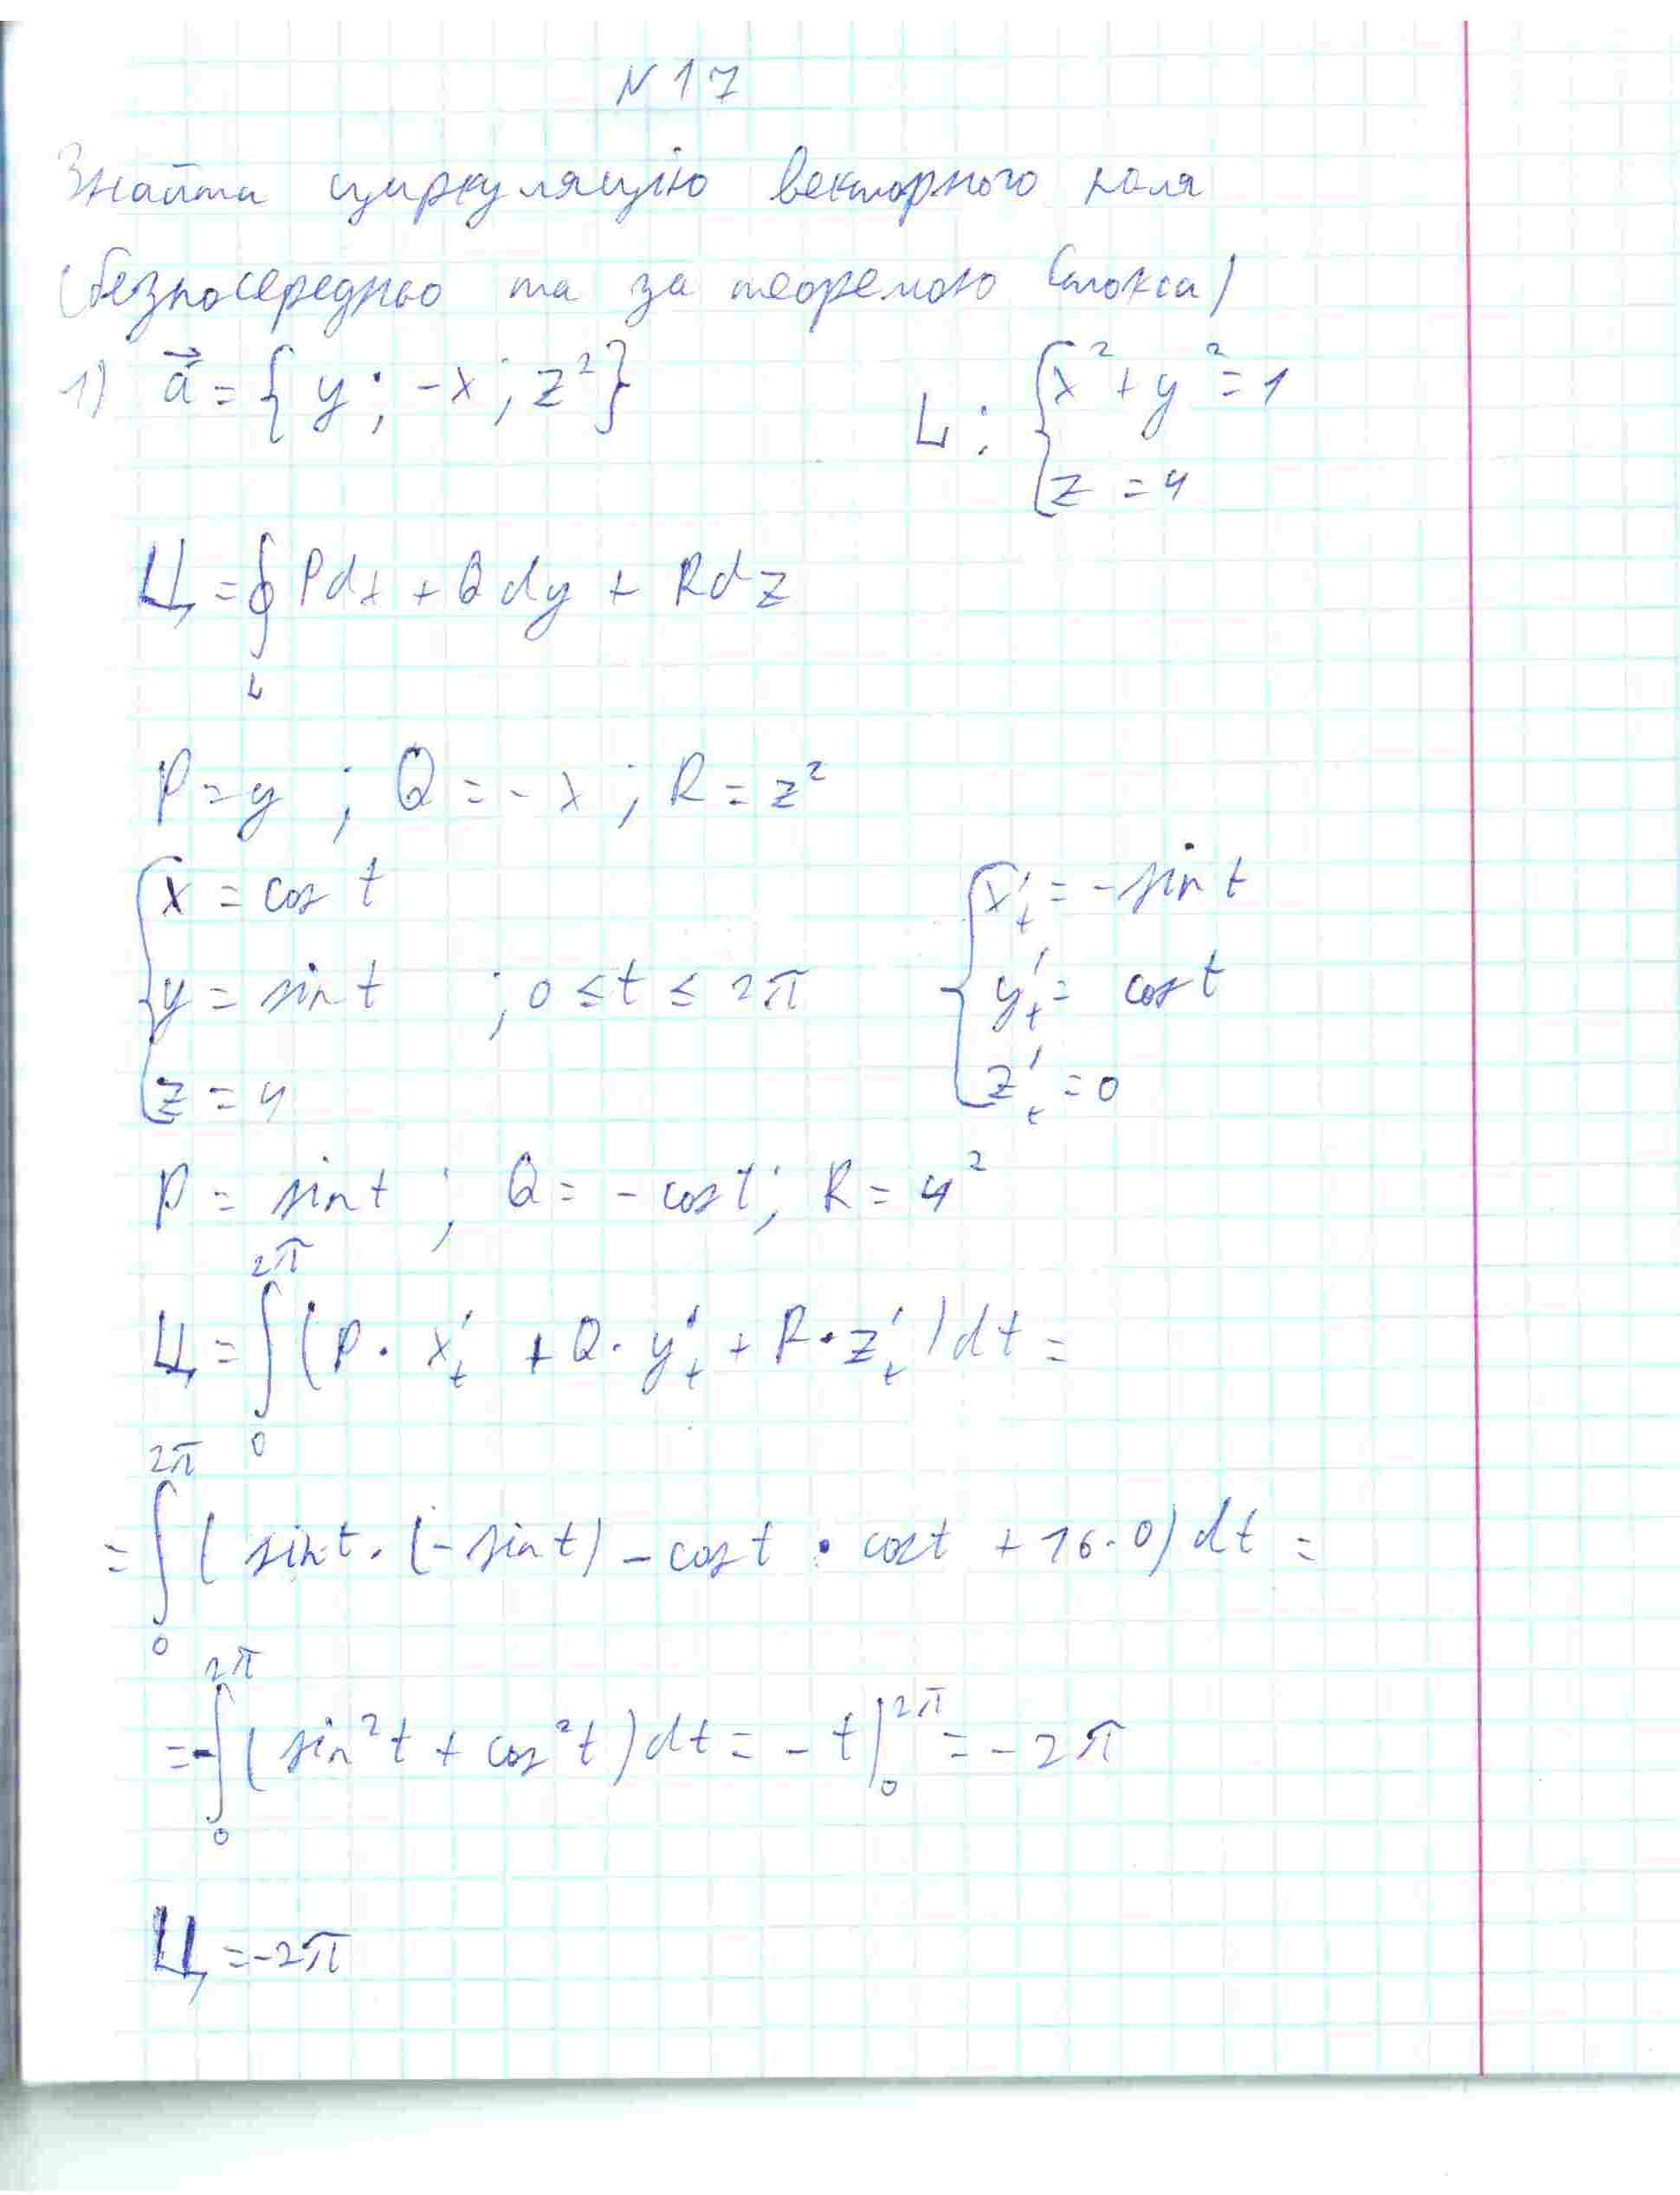 N 17
Знайти циркуляцію векторного поля
(безпосередньо та за теоремою Стокса)
1) a⃗ = { y ; -x ; z² }   L : { x² + y² = 1
z = 4
Ц = ∮ Pdx + Qdy + Rdz
L
P = y ; Q = - x ; R = z²
{ x = cos t   { x'ₜ = - sin t
y = sin t ; 0 ≤ t ≤ 2π   y'ₜ = cos t
z = 4   z'ₜ = 0
P = sin t ; Q = - cos t ; R = 4²
2π
Ц = ∫ (P · x'ₜ + Q · y'ₜ + R · z'ₜ) dt =
0
2π
= ∫ ( sin t · (- sin t) - cos t · cos t + 16 · 0) dt =
0
2π
= - ∫ ( sin² t + cos² t ) dt = - t |₀^2π = - 2π
0
Ц = -2π